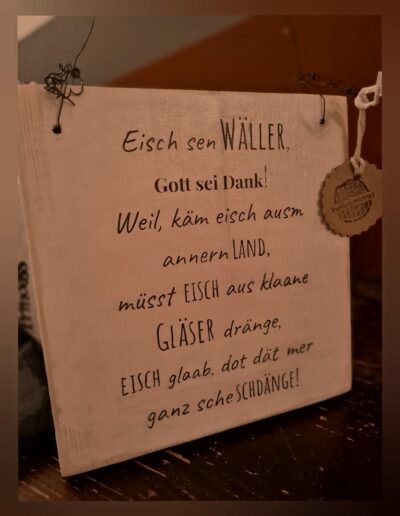 Eisch sen WÄLLER,
Gott sei Dank!
Weil, käm eisch ausm
annern LAND,
müsst EISCH aus klaane
GLÄSER dränge,
EISCH glaab. dot dät mer
ganz sche SCHDÄNGE!